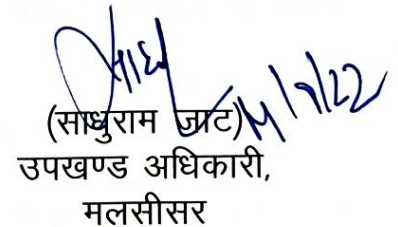 (साधुराम जाट)
उपखण्ड अधिकारी,
मलसीसर